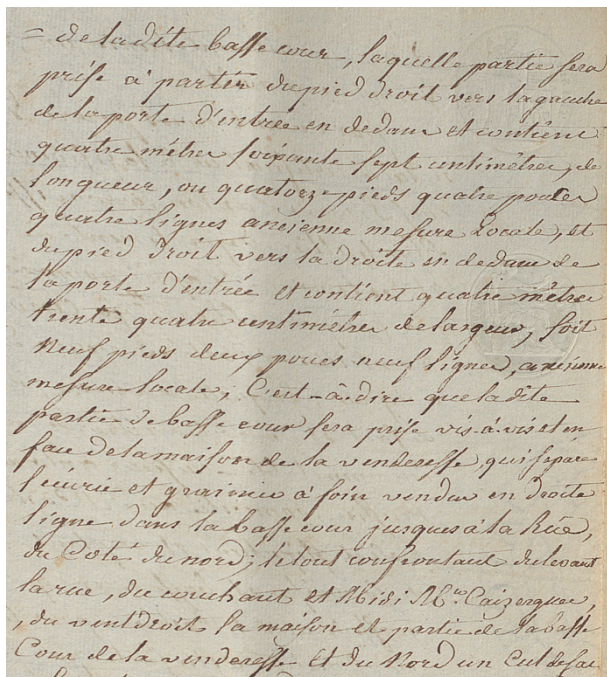 = de la dite basse cour, laquelle partie sera
prise à partir du pied droit vers la gauche
de la porte d'intrée en dedans et contient
quatre mètres soixante sept centimètres, de
longueur, ou quatorze pieds quatre pouces
quatre lignes ancienne mesure Locale, et
du pied droit vers la droite en dedans de
la porte d'intrée et contient quatre mètres
trente quatre centimètres de largeur, soit
Neuf pieds deux pouces neuf lignes, ancienne
mesure locale; C'est-à-dire que la dite
partie de basse cour sera prise vis-à-vis et en
face de la maison de la venderesse, qui sépare
l'écurie et grainier à foin vendus en droite
ligne dans la basse cour jusques à la Rüe,
du Coté du nord; le tout confrontant du levant
la rue, du couchant et Midi Caizergues,
, du vent droit la maison et partie de la basse
Cour de la venderesse et du Nord un Cul de sac